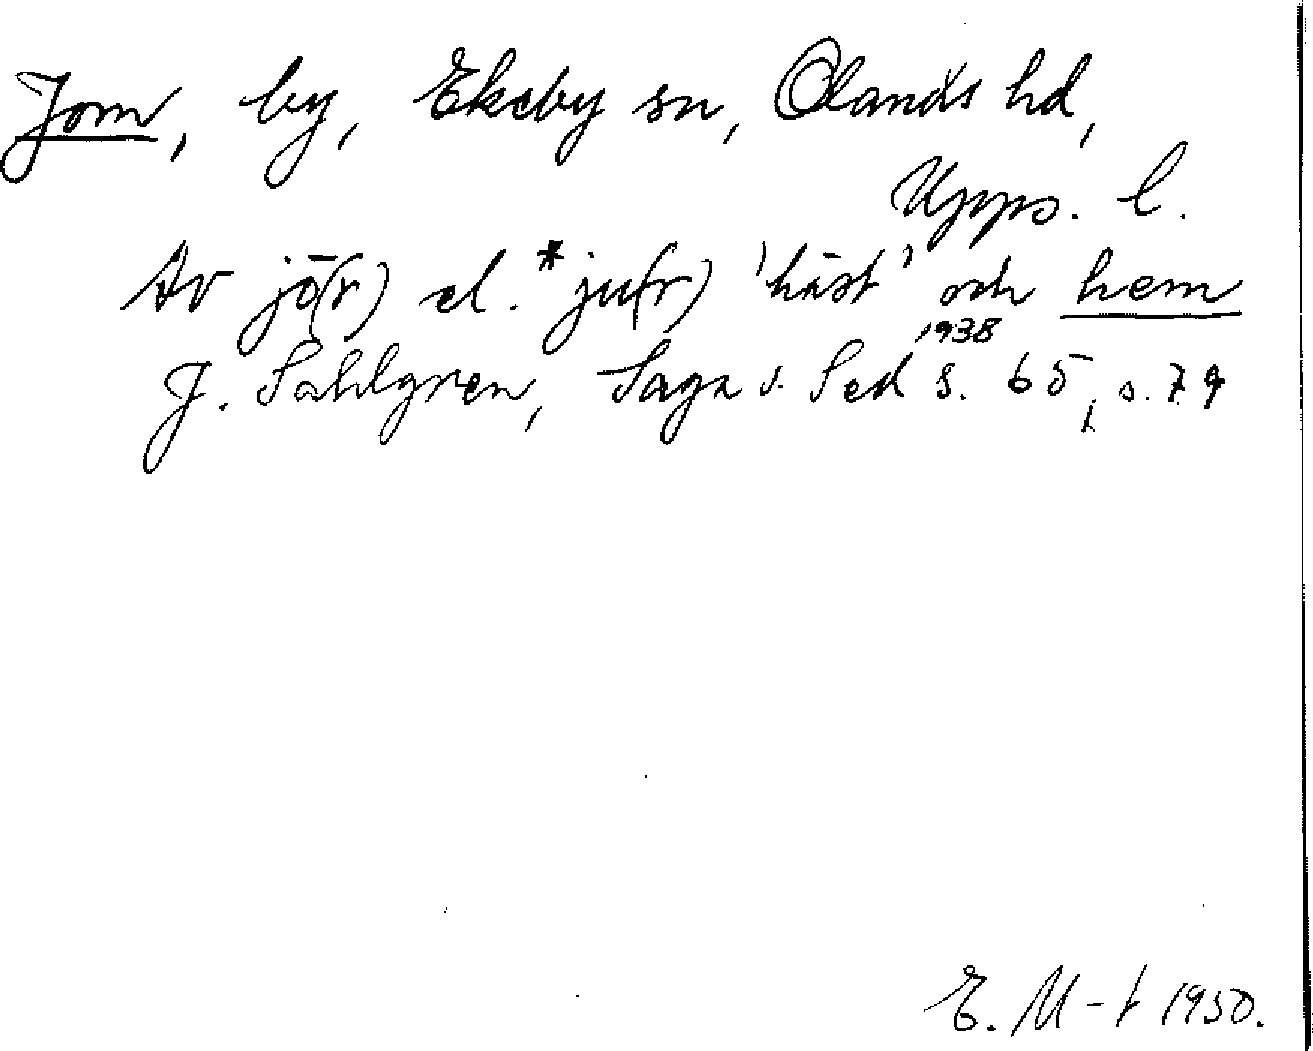 Jom, by, Ekeby sn, Olands hd,
Upps. l.
Av jō(r) el. *ju(r) 'häst' och hem
J. Sahlgren, Saga o. Sed 1938 s. 65, s. 79
E. M-t 1950.